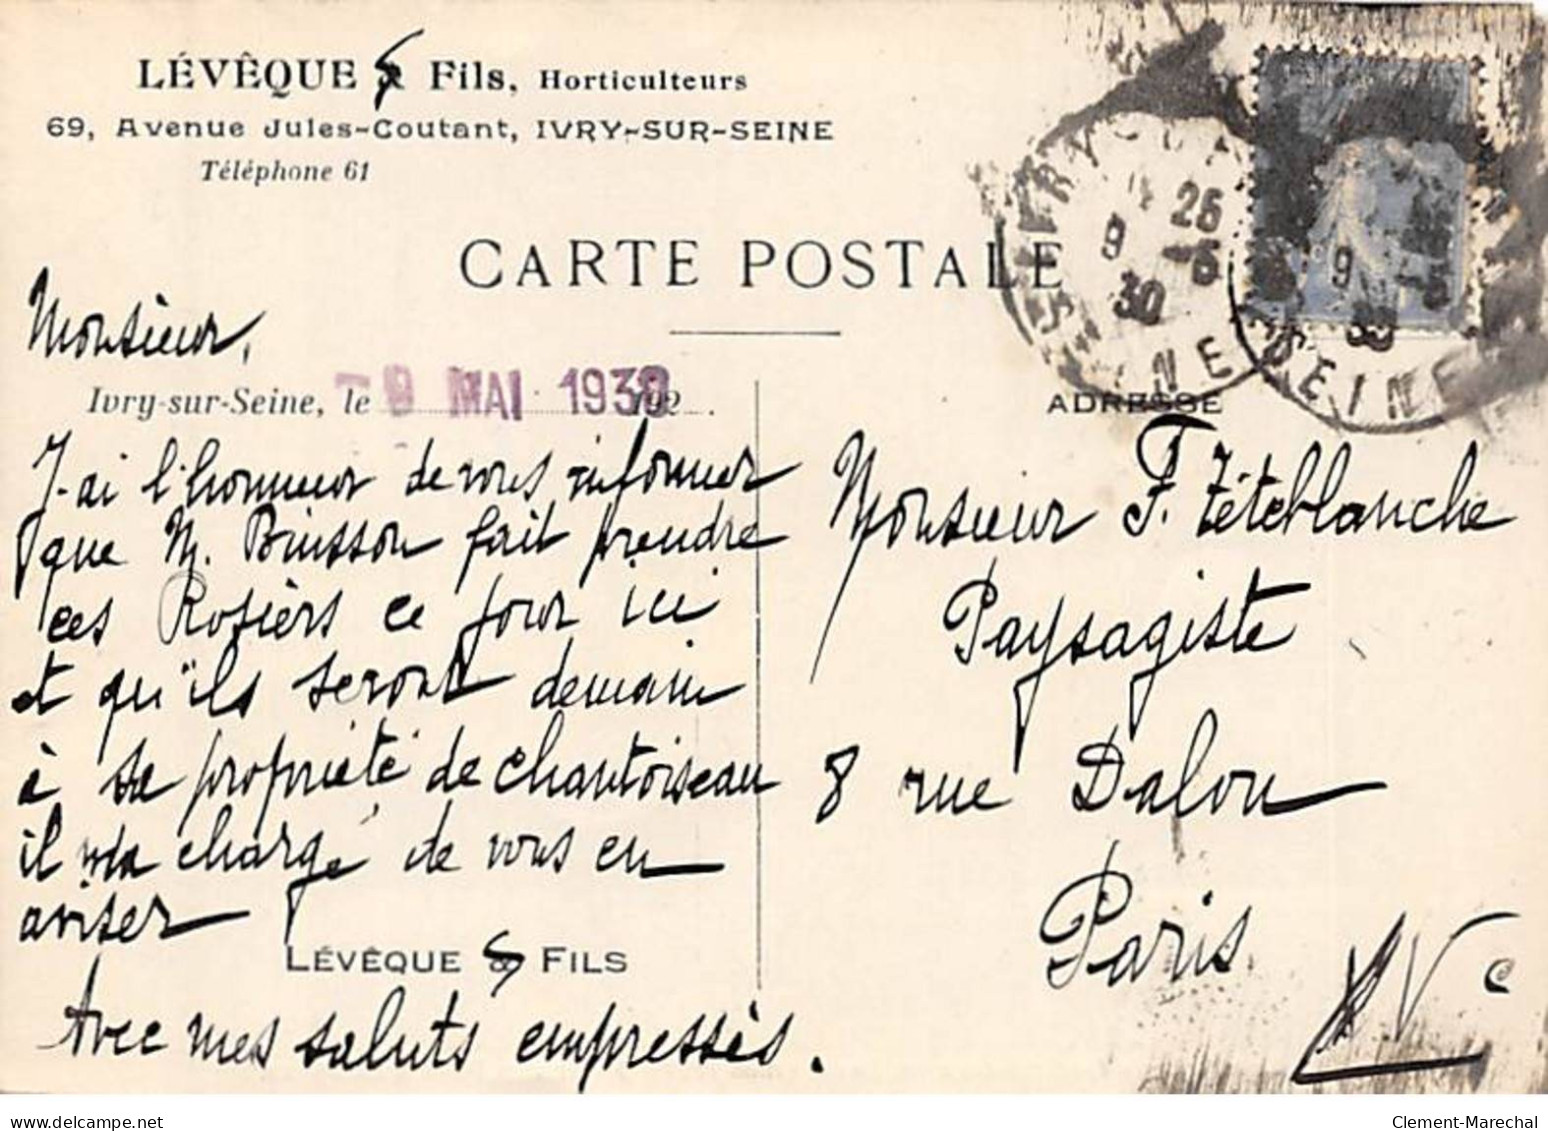 LÉVÊQUE & Fils, Horticulteurs
69, Avenue Jules-Coutant, IVRY-SUR-SEINE
Téléphone 61
CARTE POSTALE
Monsieur,
Ivry-sur-Seine, le 192
-9 MAI 1930
J'ai l'honneur de vous informer
que M. Buisson fait prendre
ces Rosiers ce jour ici
et qu'ils seront demain
à sa propriété de Chantoiseau
il m'a chargé de vous en
aviser
LÉVÊQUE & FILS
Avec mes saluts empressés.
IVRY SUR SEINE
25
9 -5
30
9 -5
30
SEINE
ADRESSE
Monsieur F. Tèteblanche
Paysagiste
8 rue Dalou
Paris
XVe
delcampe.net
Clement-Marechal